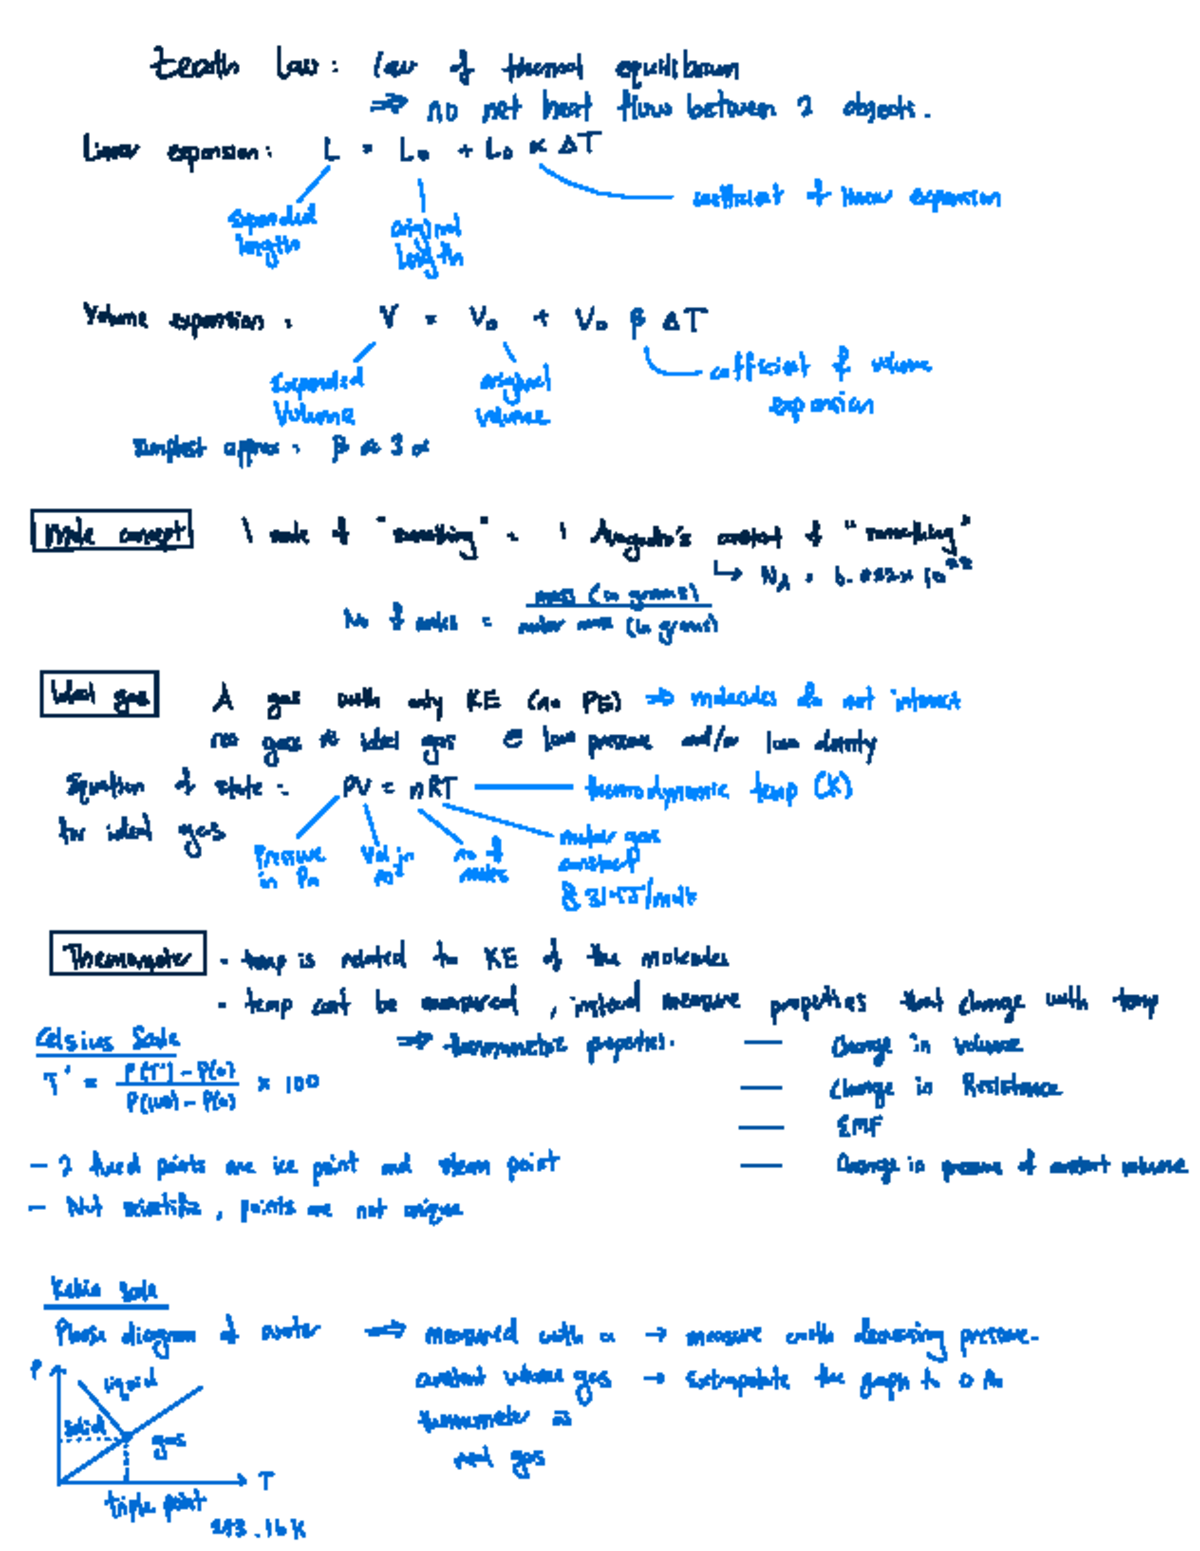 Zeroth Law : law of thermal equilibrium
⇒ no net heat flow between 2 objects.
Linear expansion : L = L₀ + L₀ α ΔT
coefficient of linear expansion
Expanded length
original length
Volume expansion : V = V₀ + V₀ β ΔT
Expanded Volume
original volume
coefficient of volume expansion
Simplest approx : β ≈ 3 α
Mole concept 1 mole of "something" = 1 constant of "something"
↳ N_A =
No of moles = mass (in grams) / molar mass (in grams)
Ideal gas A gas with only KE (no PE) ⇒ molecules do not interact
gas ≈ ideal gas @ low pressure and/or low density
Equation of state : PV = nRT thermodynamic temp (K)
for ideal gas
Pressure in Pa
Vol in
no of moles
molar gas constant
Thermometer - temp is related to KE of the molecules
- temp cant be measured , instead measure properties that change with temp
⇒ thermometric properties.
— Change in volume
— Change in Resistance
— EMF
— Change in pressure of constant volume
Celsius Scale
T' = P(T') - P(0) / P(100) - P(0) × 100
- 2 fixed points are ice point and steam point
- Not scientific , points are not unique
Kelvin Scale
Phase diagram of water ⇒ measured with a → measure with decreasing pressure.
constant volume gas → Extrapolate the graph to 0 Pa
thermometer
real gas
P
liquid
solid
gas
T
triple point
273.16K